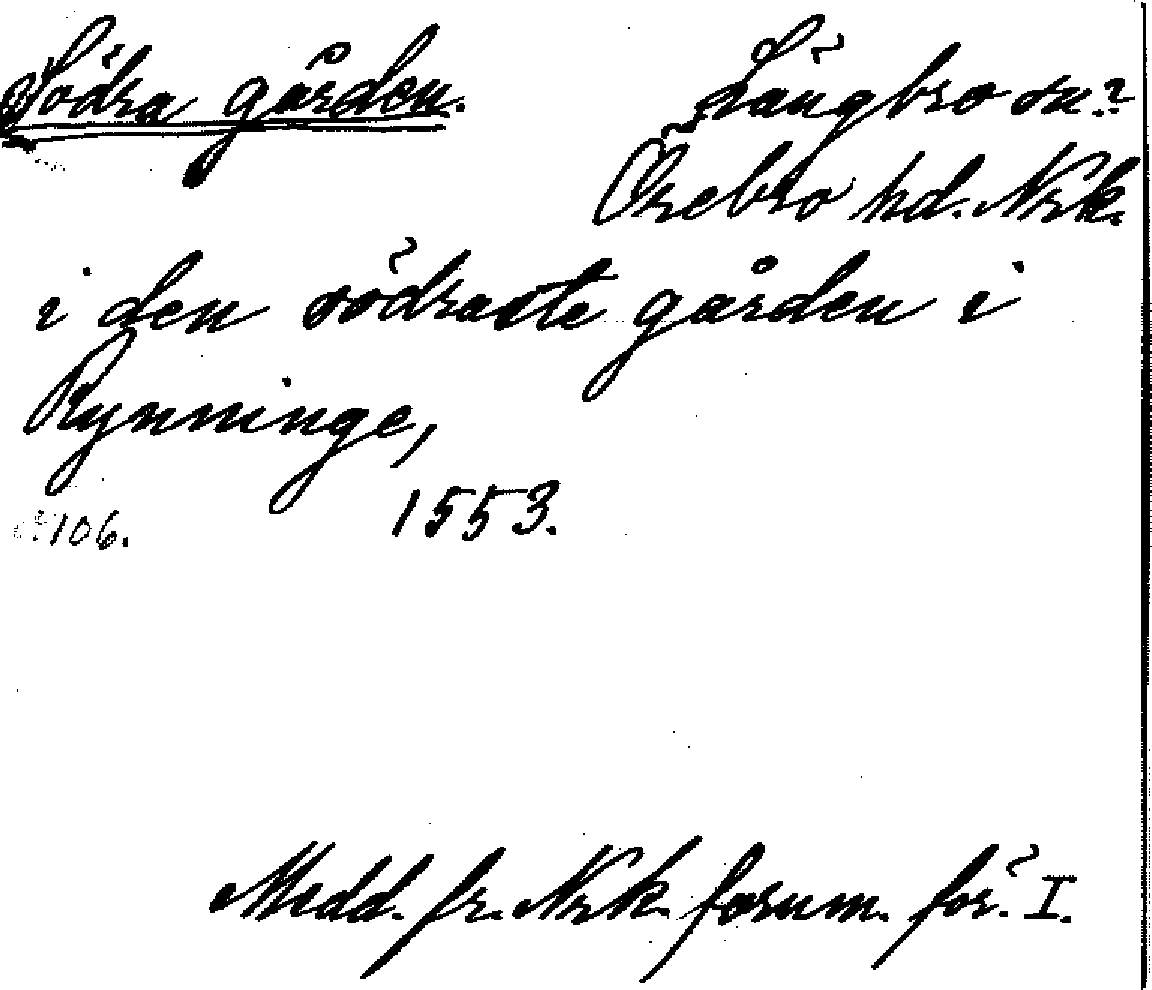 Södra gården. Längbro sn?
Örebro hd. Nrk.
i den södraste gården i
Rynninge,
s. 106. 1553.
Medd. fr. Nrk. fornm. för. I.